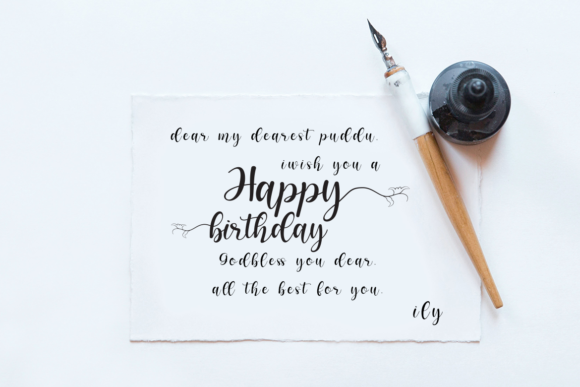 dear my dearest puddu.
iwish you a
Happy
birthday
Godbless you dear.
all the best for you.
ily